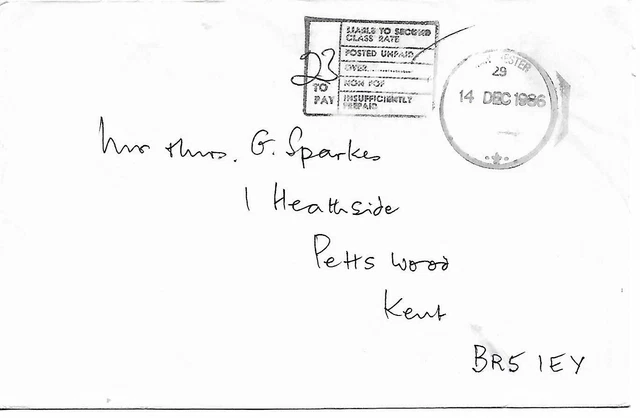 23
TO
PAY
LIABLE TO SECOND
CLASS RATE
POSTED UNPAID
OVER............
NON POP
INSUFFICIENTLY
PREPAID
29
14 DEC 1986
Mr & Mrs. G. Sparkes
1 Heathside
Petts Wood
Kent
BR5 1EY